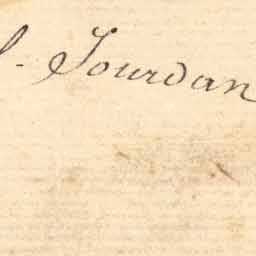 l. Jourdan